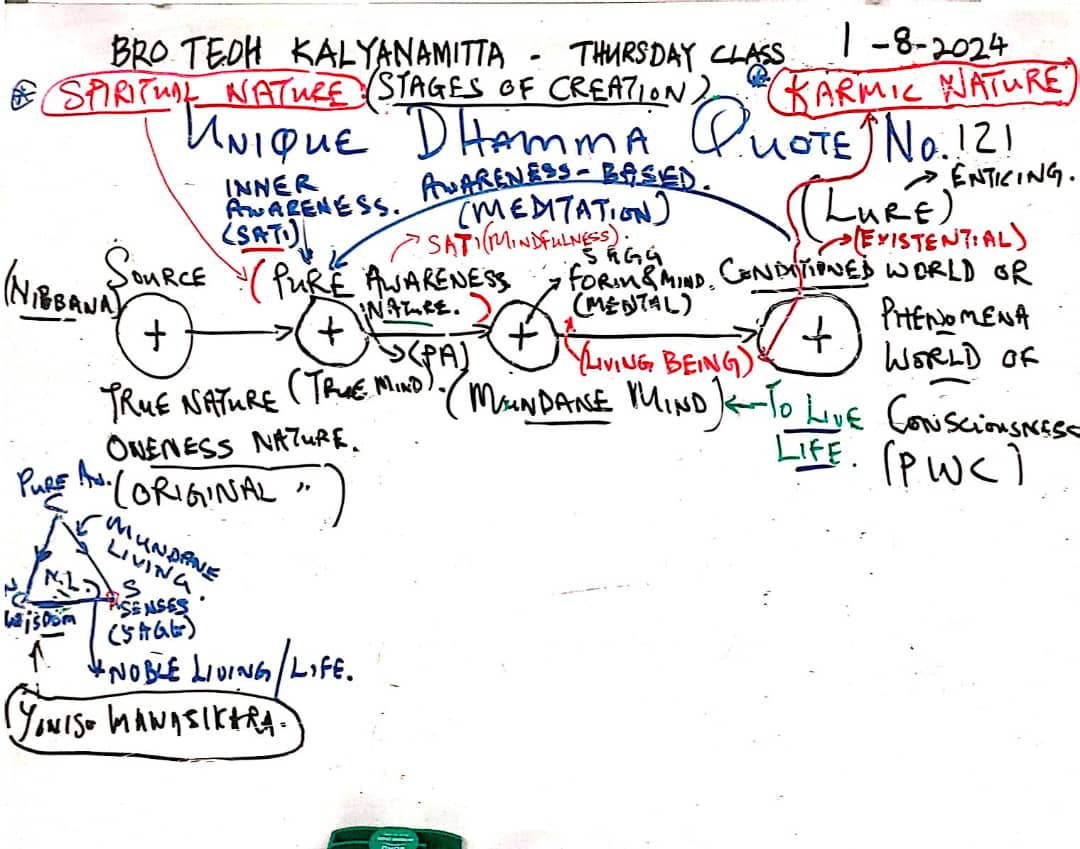 BRO TEOH KALYANAMITTA - THURSDAY CLASS 1-8-2024
SPIRITUAL NATURE (STAGES OF CREATION) KARMIC NATURE
UNIQUE DHAMMA QUOTE No. 121
INNER AWARENESS. (SATI)
AWARENESS-BASED. (MEDITATION)
(LURE) → ENTICING.
→ (EXISTENTIAL)
→ SATI (MINDFULNESS).
(NIBBANA) SOURCE
(PURE AWARENESS NATURE.)
5 AGG
FORM & MIND. (MENTAL)
CONDITIONED WORLD OR
PHENOMENA
WORLD OF
CONSCIOUSNESS
(PWC)
+ + + +
→ (PA)
(LIVING BEING)
TRUE NATURE (TRUE MIND).
(MUNDANE MIND) ← TO LIVE
LIFE.
ONENESS NATURE.
(ORIGINAL ")
PURE AW.
MUNDANE
LIVING
N.L.
S
SENSES
(5 AGG)
WISDOM
NOBLE LIVING/LIFE.
YONISO MANASIKARA.